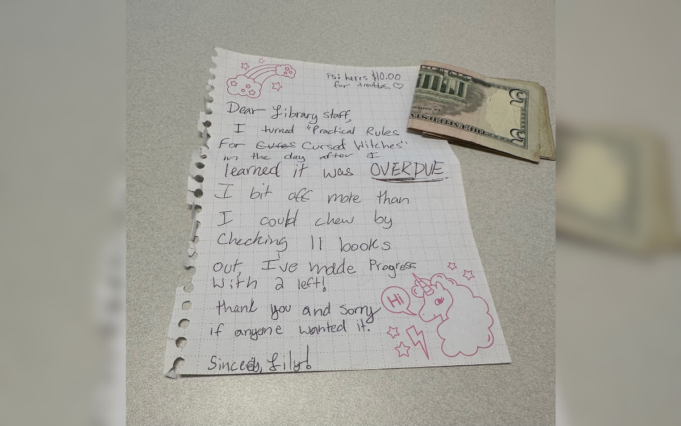 PS: heres $10.00
for troubles ♡
Dear Library staff,
I turned "Practical Rules
For Cures Cursed Witches"
in the day after I
learned it was OVERDUE.
I bit off more than
I could chew by
Checking 11 books
out, I've made Progress
with 2 left!
thank you and sorry
if anyone wanted it.
Sincerely, Lily!
Hi
5
5